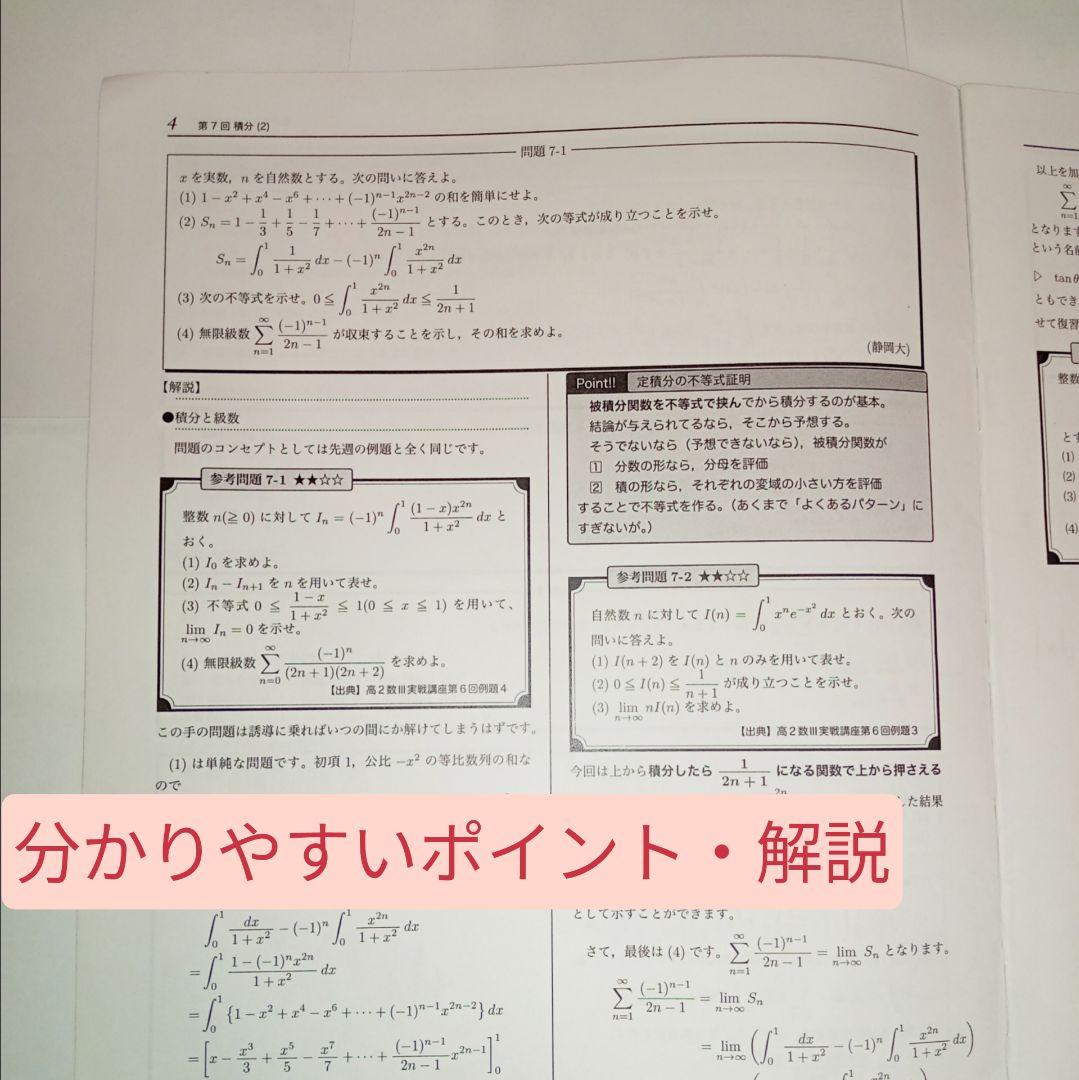 4 第7回 積分(2)
問題 7-1
x を実数，n を自然数とする。次の問いに答えよ。
(1) 1 − x² + x⁴ − x⁶ + ⋯ + (−1)ⁿ⁻¹x²ⁿ⁻² の和を簡単にせよ。
(2) Sₙ = 1 − 1/3 + 1/5 − 1/7 + ⋯ + (−1)ⁿ⁻¹/(2n − 1) とする。このとき，次の等式が成り立つことを示せ。
Sₙ = ∫₀¹ 1/(1 + x²) dx − (−1)ⁿ ∫₀¹ x²ⁿ/(1 + x²) dx
(3) 次の不等式を示せ。0 ≦ ∫₀¹ x²ⁿ/(1 + x²) dx ≦ 1/(2n + 1)
(4) 無限級数 ∑_{n=1}^{∞} (−1)ⁿ⁻¹/(2n − 1) が収束することを示し，その和を求めよ。
(静岡大)
【解説】
●積分と級数
問題のコンセプトとしては先週の例題と全く同じです。
参考問題 7-1 ★★☆☆
整数 n(≧ 0) に対して Iₙ = (−1)ⁿ ∫₀¹ (1 − x)x²ⁿ/(1 + x²) dx と
おく。
(1) I₀ を求めよ。
(2) Iₙ − Iₙ₊₁ を n を用いて表せ。
(3) 不等式 0 ≦ (1 − x)/(1 + x²) ≦ 1(0 ≦ x ≦ 1) を用いて、
lim_{n→∞} Iₙ = 0 を示せ。
(4) 無限級数 ∑_{n=0}^{∞} (−1)ⁿ/((2n + 1)(2n + 2)) を求めよ。
【出典】高2数III実戦講座第6回例題4
この手の問題は誘導に乗ればいつの間にか解けてしまうはずです。
(1) は単純な問題です。初項 1，公比 −x² の等比数列の和な
ので
∫₀¹ dx/(1 + x²) − (−1)ⁿ ∫₀¹ x²ⁿ/(1 + x²) dx
= ∫₀¹ (1 − (−1)ⁿx²ⁿ)/(1 + x²) dx
= ∫₀¹ {1 − x² + x⁴ − x⁶ + ⋯ + (−1)ⁿ⁻¹x²ⁿ⁻²} dx
= [x − x³/3 + x⁵/5 − x⁷/7 + ⋯ + (−1)ⁿ⁻¹/(2n − 1) x²ⁿ⁻¹]₀¹
Point!! 定積分の不等式証明
被積分関数を不等式で挟んでから積分するのが基本。
結論が与えられてるなら，そこから予想する。
そうでないなら（予想できないなら），被積分関数が
1 分数の形なら，分母を評価
2 積の形なら，それぞれの変域の小さい方を評価
することで不等式を作る。（あくまで「よくあるパターン」に
すぎないが。）
参考問題 7-2 ★★☆☆
自然数 n に対して I(n) = ∫₀¹ xⁿe^{−x²} dx とおく。次の
問いに答えよ。
(1) I(n + 2) を I(n) と n のみを用いて表せ。
(2) 0 ≦ I(n) ≦ 1/(n + 1) が成り立つことを示せ。
(3) lim_{n→∞} nI(n) を求めよ。
【出典】高2数III実戦講座第6回例題3
今回は上から積分したら 1/(2n + 1) になる関数で上から押さえる
した結果
として示すことができます。
さて，最後は (4) です。∑_{n=1}^{∞} (−1)ⁿ⁻¹/(2n − 1) = lim_{n→∞} Sₙ となります。
∑_{n=1}^{∞} (−1)ⁿ⁻¹/(2n − 1) = lim_{n→∞} Sₙ
= lim_{n→∞} (∫₀¹ dx/(1 + x²) − (−1)ⁿ ∫₀¹ x²ⁿ/(1 + x²) dx)
分かりやすいポイント・解説
以上を加
∑_{n=1}^{∞}
となります
という名前
▷ tanθ
ともでき
せて復習
整数
と
(1)
(2)
(3)
(4)